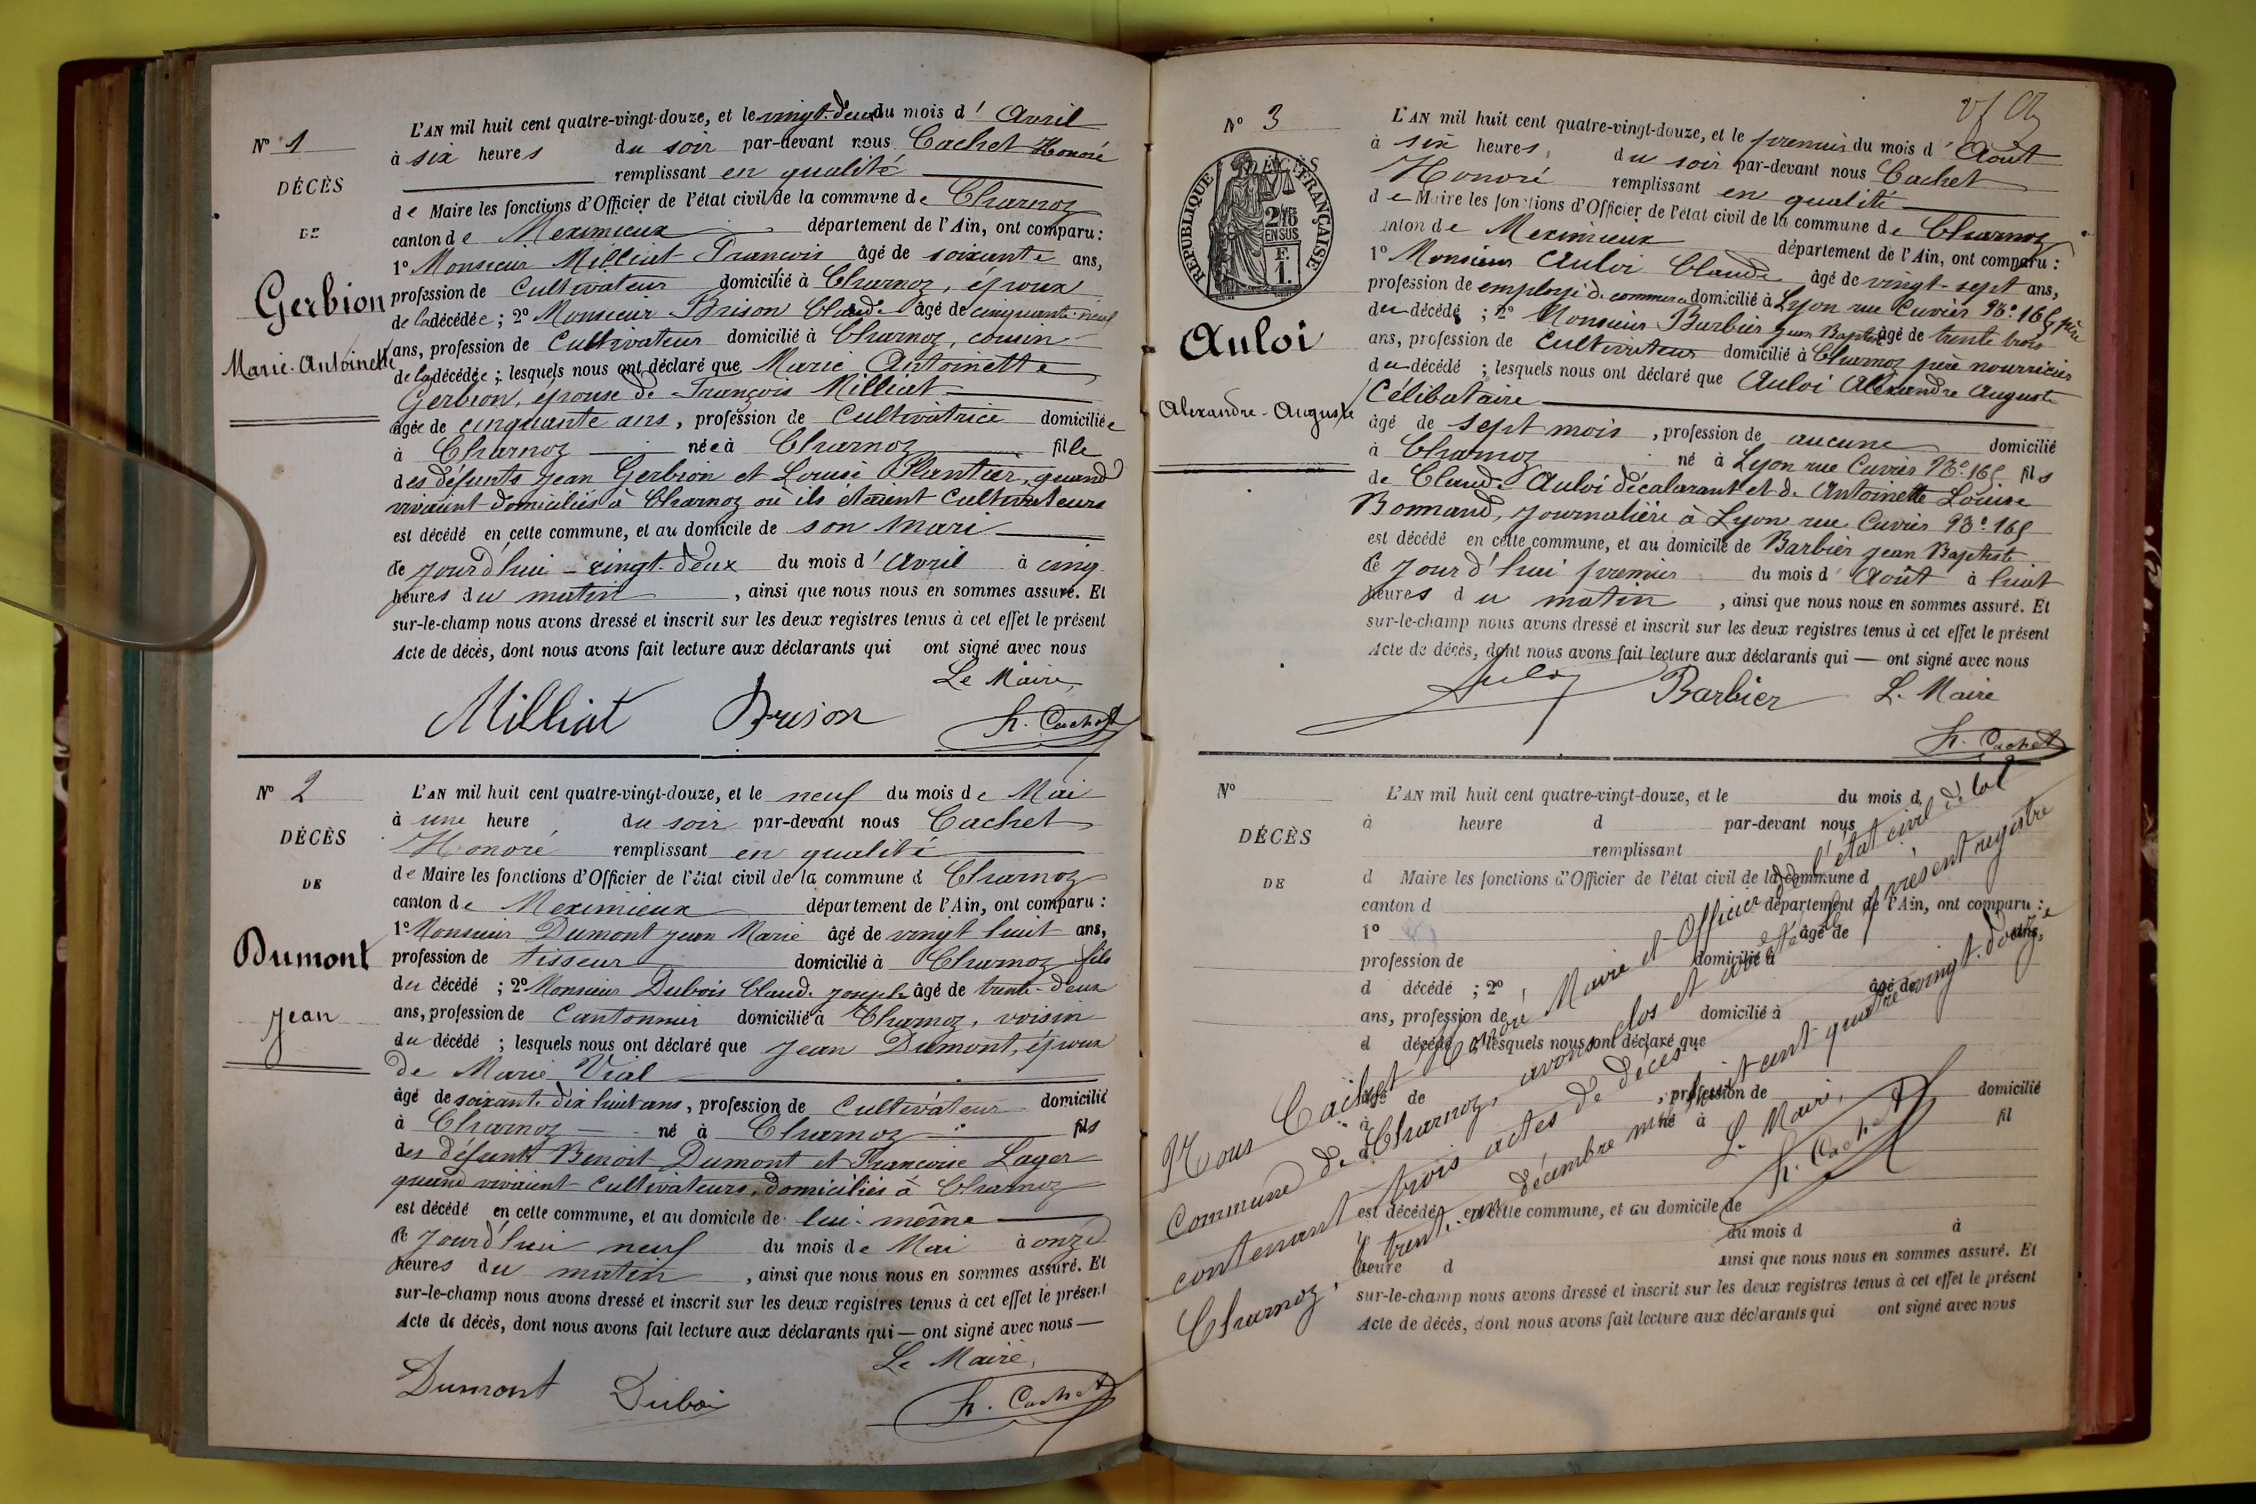 N° 1
DÉCÈS
DE
Gerbion
Marie-Antoinette
L'AN mil huit cent quatre-vingt-douze, et le vingt-deux du mois d'Avril
à six heures du soir par-devant nous Cachet Honoré
remplissant en qualité
de Maire les fonctions d'Officier de l'état civil de la commune de Charnoz
canton de Meximieux département de l'Ain, ont comparu :
1° Monsieur Milliat Francois âgé de soixante ans,
profession de Cultivateur domicilié à Charnoz, époux
de la décédée ; 2° Monsieur Brison Claude âgé de cinquante-neuf
ans, profession de Cultivateur domicilié à Charnoz, cousin
de la décédée ; lesquels nous ont déclaré que Marie Antoinette
Gerbion, épouse de François Milliat
âgée de cinquante ans, profession de Cultivatrice domiciliée
à Charnoz née à Charnoz fille
des défunts Jean Gerbion et Louise Plantier, quand
vivaient domiciliés à Charnoz où ils étaient Cultivateurs
est décédé en cette commune, et au domicile de son Mari
ce jourd'hui vingt-deux du mois d'Avril à cinq
heures du matin, ainsi que nous nous en sommes assuré. Et
sur-le-champ nous avons dressé et inscrit sur les deux registres tenus à cet effet le présent
Acte de décès, dont nous avons fait lecture aux déclarants qui ont signé avec nous
Le Maire,
Milliat Brison h. Cachet
N° 2
DÉCÈS
DE
Dumont
Jean
L'AN mil huit cent quatre-vingt-douze, et le neuf du mois de Mai
à une heure du soir par-devant nous Cachet
Honoré remplissant en qualité
de Maire les fonctions d'Officier de l'état civil de la commune d Charnoz
canton de Meximieux département de l'Ain, ont comparu :
1° Monsieur Dumont Jean Marie âgé de vingt huit ans,
profession de tisseur domicilié à Charnoz fils
du décédé ; 2° Monsieur Dubois Claude Joseph âgé de trente-deux
ans, profession de Cantonnier domicilié à Charnoz, voisin
du décédé ; lesquels nous ont déclaré que Jean Dumont, époux
de Marie Vial
âgé de soixante dix huit ans, profession de Cultivateur domicilié
à Charnoz né à Charnoz fils
des défunts Benoit Dumont et Françoise Lager
quand vivaient Cultivateurs, domiciliés à Charnoz
est décédé en cette commune, et au domicile de lui-même
ce jourd'hui neuf du mois de Mai à onze
heures du matin, ainsi que nous nous en sommes assuré. Et
sur-le-champ nous avons dressé et inscrit sur les deux registres tenus à cet effet le présent
Acte de décès, dont nous avons fait lecture aux déclarants qui — ont signé avec nous —
Le Maire,
Dumont Dubois h. Cachet
N° 3
RÉPUBLIQUE FRANÇAISE
DÉCÈS
2/10
EN SUS
F.
1.
Auloi
Alexandre-Auguste
L'AN mil huit cent quatre-vingt-douze, et le premier du mois d'Août
à six heures du soir par-devant nous Cachet
Honoré remplissant en qualité
de Maire les fonctions d'Officier de l'état civil de la commune de Charnoz
canton de Meximieux département de l'Ain, ont comparu :
1° Monsieur Auloi Claude âgé de vingt-sept ans,
profession de employé de commerce domicilié à Lyon rue Cuvier N° 165 père
du décédé ; 2° Monsieur Barbier Jean Baptiste âgé de trente trois
ans, profession de Cultivateur domicilié à Charnoz père nourricier
du décédé ; lesquels nous ont déclaré que Auloi Alexandre Auguste
Célibataire
âgé de sept mois, profession de aucune domicilié
à Charnoz né à Lyon rue Cuvier N° 165 fils
de Claude Auloi décalarant et de Antoinette Louise
Bonnand, journalière à Lyon rue Cuvier N° 165
est décédé en cette commune, et au domicile de Barbier Jean Baptiste
ce jourd'hui premier du mois d'Août à huit
heures du matin, ainsi que nous nous en sommes assuré. Et
sur-le-champ nous avons dressé et inscrit sur les deux registres tenus à cet effet le présent
Acte de décès, dont nous avons fait lecture aux déclarants qui — ont signé avec nous
Auloi Barbier Le Maire
h. Cachet
N°
DÉCÈS
DE
L'AN mil huit cent quatre-vingt-douze, et le du mois d
à heure d par-devant nous
remplissant
d Maire les fonctions d'Officier de l'état civil de la commune d
canton d département de l'Ain, ont comparu :
1° âgé de ans,
profession de domicilié à
d décédé ; 2° âgé de
ans, profession de domicilié à
d décédé ; lesquels nous ont déclaré que
âgé de , profession de domicilié
à né à fil
est décédé en cette commune, et au domicile de
le du mois d à
heure d ainsi que nous nous en sommes assuré. Et
sur-le-champ nous avons dressé et inscrit sur les deux registres tenus à cet effet le présent
Acte de décès, dont nous avons fait lecture aux déclarants qui ont signé avec nous
Nous Cachet Honoré Maire et Officier de l'état civil de la
Commune de Charnoz, avons clos et arrêté le présent registre
contenant trois actes de décès
Charnoz, le trente-un décembre mil huit cent quatre-vingt-douze
Le Maire,
h. Cachet